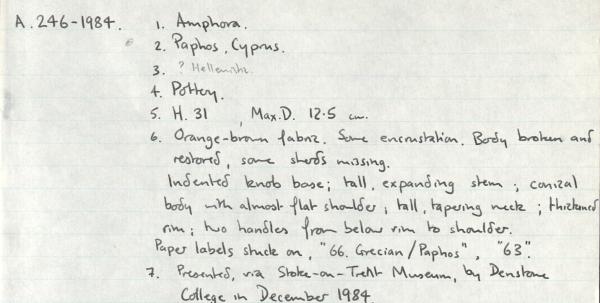 A.246-1984. 1. Amphora.
2. Paphos, Cyprus.
3. ? Hellenistic.
4. Pottery.
5. H. 31 , Max.D. 12.5 cm.
6. Orange-brown fabric. Some encrustation. Body broken and
restored, some sherds missing.
Indented knob base; tall, expanding stem; conical
body with almost flat shoulder; tall, tapering neck; thickened
rim; two handles from below rim to shoulder.
Paper labels stuck on, "66. Grecian/Paphos", "63".
7. Presented, via Stoke-on-Trent Museum, by Denstone
College in December 1984